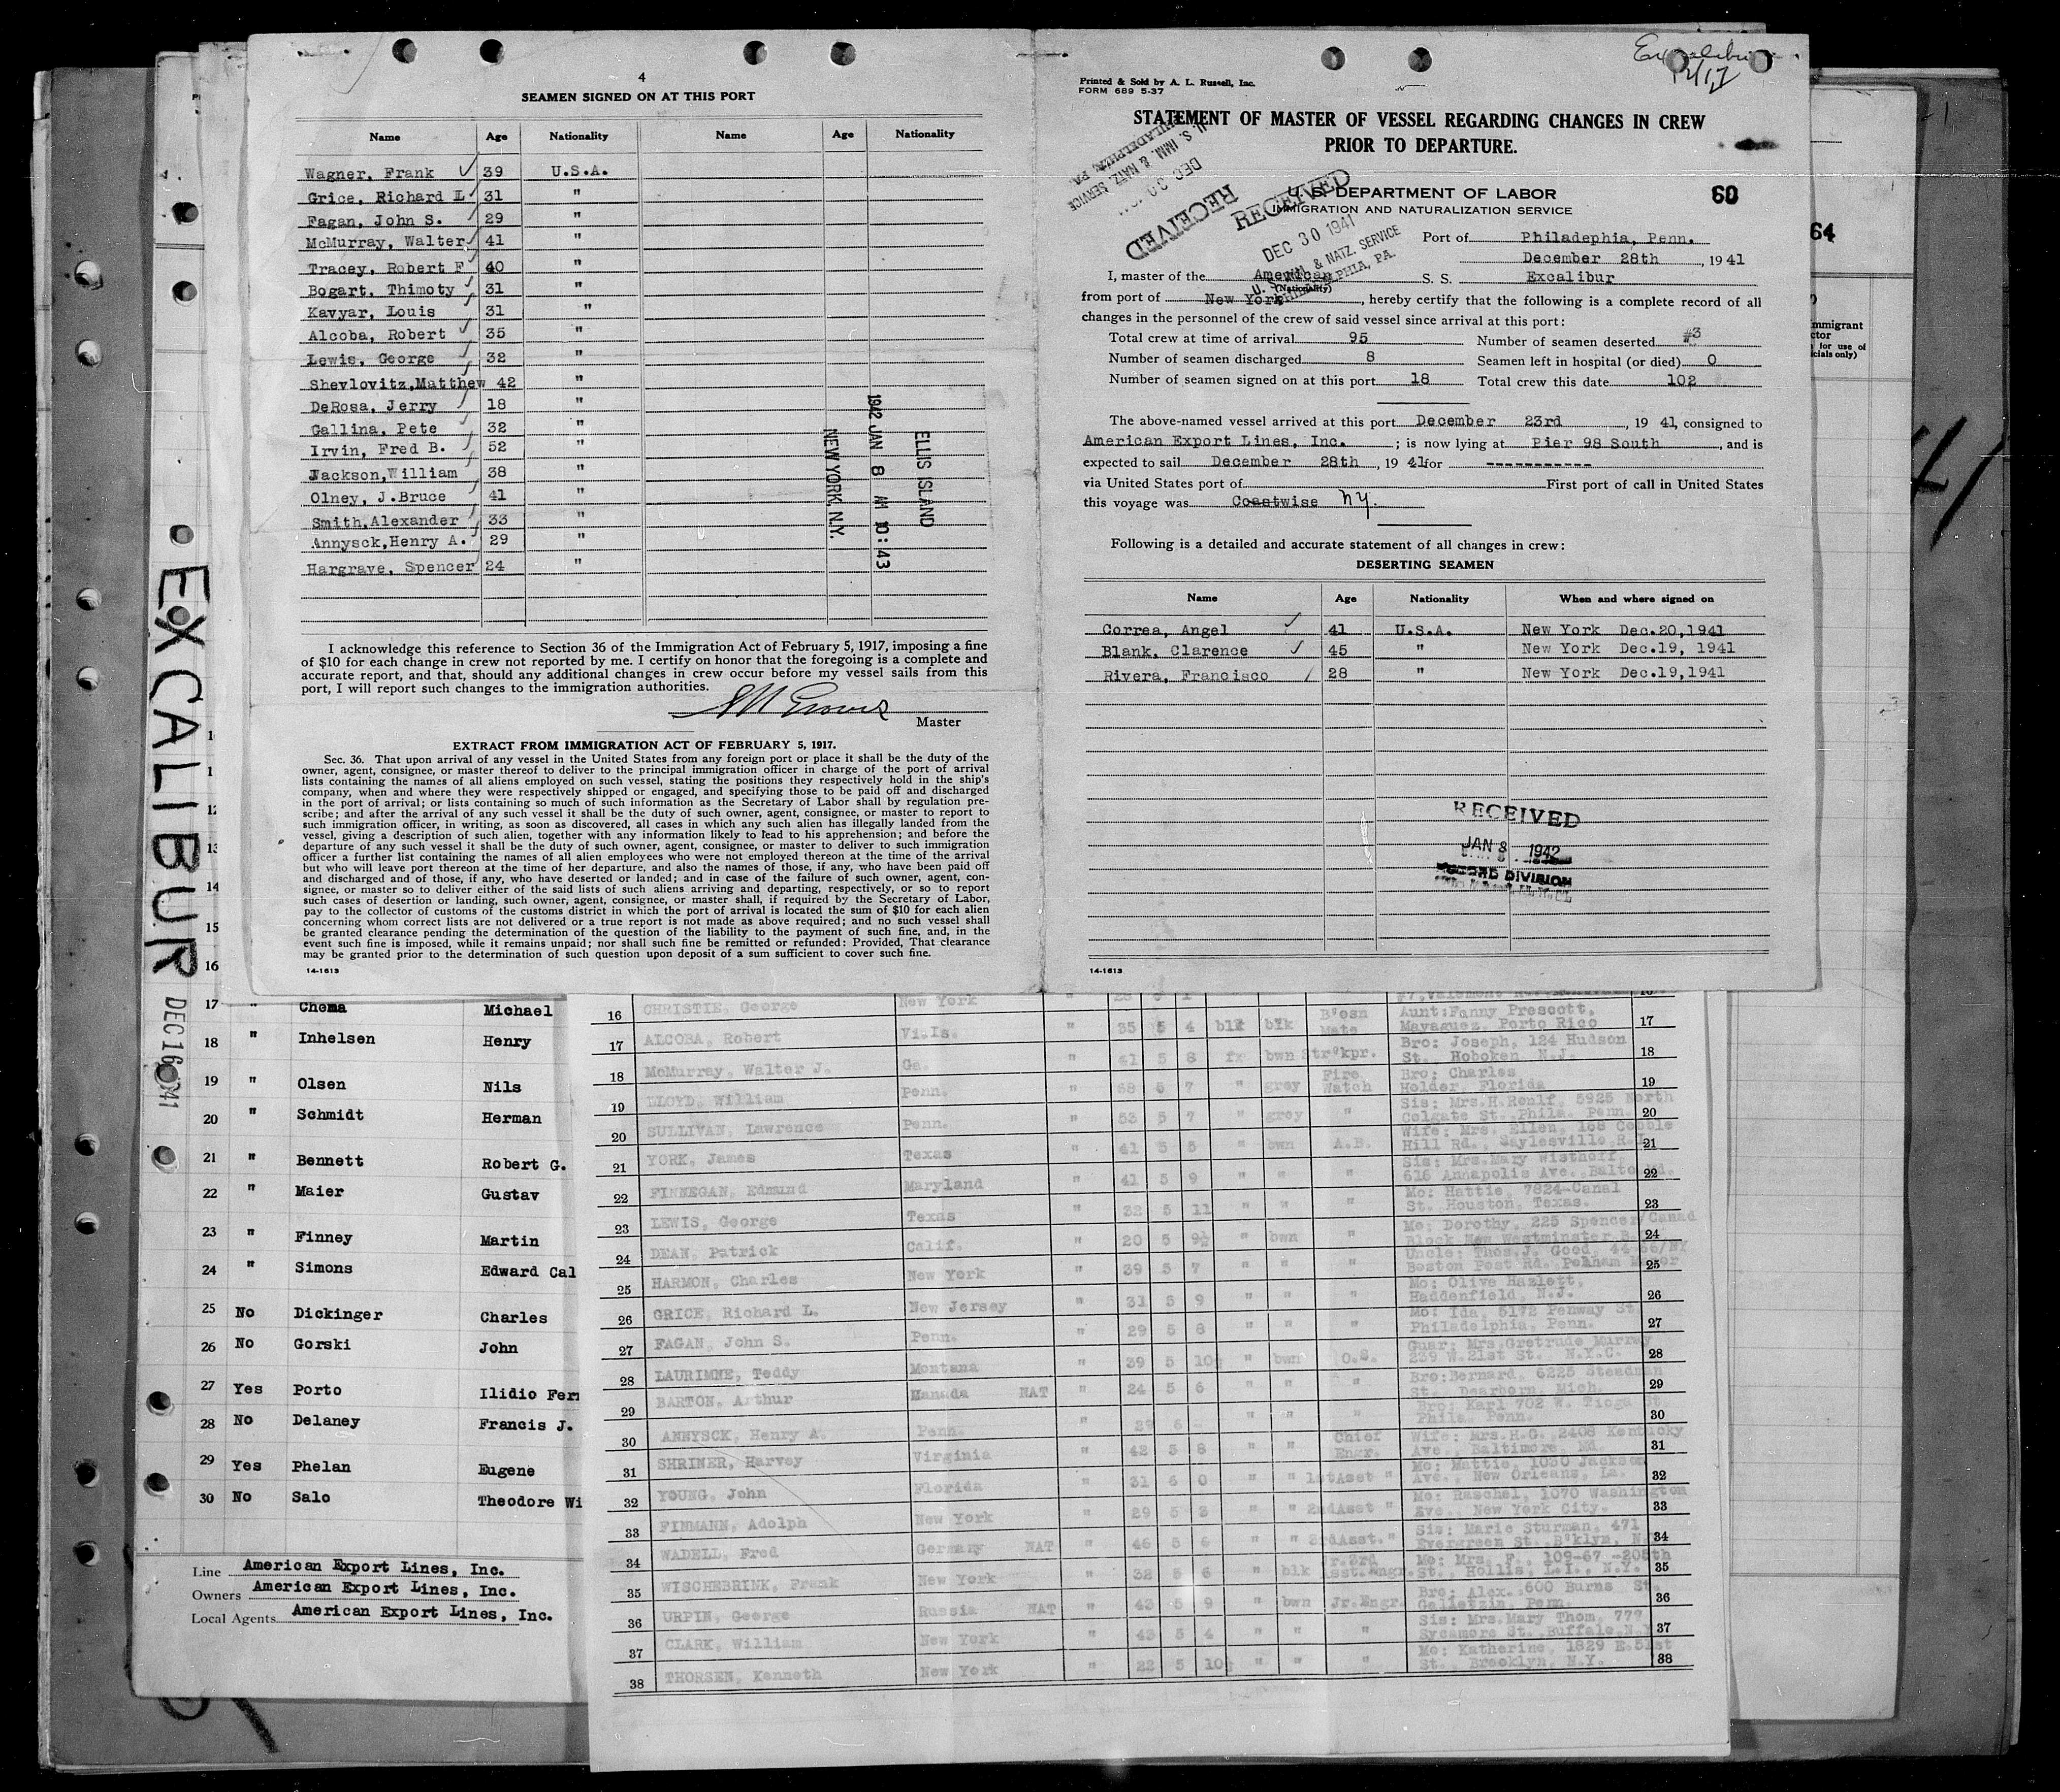 4
SEAMEN SIGNED ON AT THIS PORT
Name Age Nationality Name Age Nationality
Wagner, Frank 39 U.S.A.
Grice, Richard L 31 "
Fagan, John S. 29 "
McMurray, Walter 41 "
Tracey, Robert F 40 "
Bogart, Thimoty 31 "
Kavyar, Louis 31 "
Alcoba, Robert 35 "
Lewis, George 32 "
Shevlovitz,Matthew 42 "
DeRosa, Jerry 18 "
Gallina, Pete 32 "
Irvin, Fred B. 52 "
Jackson,William 38 "
Olney, J.Bruce 41 "
Smith,Alexander 33 "
Annysck,Henry A. 29 "
Hargrave, Spencer 24 "
NEW YORK, N.Y.
1942 JAN 8 AM 10:43
ELLIS ISLAND
I acknowledge this reference to Section 36 of the Immigration Act of February 5, 1917, imposing a fine
of $10 for each change in crew not reported by me. I certify on honor that the foregoing is a complete and
accurate report, and that, should any additional changes in crew occur before my vessel sails from this
port, I will report such changes to the immigration authorities.
Master
EXTRACT FROM IMMIGRATION ACT OF FEBRUARY 5, 1917.
Sec. 36. That upon arrival of any vessel in the United States from any foreign port or place it shall be the duty of the
owner, agent, consignee, or master thereof to deliver to the principal immigration officer in charge of the port of arrival
lists containing the names of all aliens employed on such vessel, stating the positions they respectively hold in the ship's
company, when and where they were respectively shipped or engaged, and specifying those to be paid off and discharged
in the port of arrival; or lists containing so much of such information as the Secretary of Labor shall by regulation pre-
scribe; and after the arrival of any such vessel it shall be the duty of such owner, agent, consignee, or master to report to
such immigration officer, in writing, as soon as discovered, all cases in which any such alien has illegally landed from the
vessel, giving a description of such alien, together with any information likely to lead to his apprehension; and before the
departure of any such vessel it shall be the duty of such owner, agent, consignee, or master to deliver to such immigration
officer a further list containing the names of all alien employees who were not employed thereon at the time of the arrival
but who will leave port thereon at the time of her departure, and also the names of those, if any, who have been paid off
and discharged and of those, if any, who have deserted or landed; and in case of the failure of such owner, agent, con-
signee, or master so to deliver either of the said lists of such aliens arriving and departing, respectively, or so to report
such cases of desertion or landing, such owner, agent, consignee, or master shall, if required by the Secretary of Labor,
pay to the collector of customs of the customs district in which the port of arrival is located the sum of $10 for each alien
concerning whom correct lists are not delivered or a true report is not made as above required; and no such vessel shall
be granted clearance pending the determination of the question of the liability to the payment of such fine, and, in the
event such fine is imposed, while it remains unpaid; nor shall such fine be remitted or refunded: Provided, That clearance
may be granted prior to the determination of such question upon deposit of a sum sufficient to cover such fine.
14-1613
Excalibur
12/17
Printed & Sold by A. L. Russell, Inc.
FORM 689 5-37
STATEMENT OF MASTER OF VESSEL REGARDING CHANGES IN CREW
PRIOR TO DEPARTURE.
U. S. DEPARTMENT OF LABOR 60
IMMIGRATION AND NATURALIZATION SERVICE
RECEIVED
DEC 30
U. S. IMM. & NATZ. SERVICE
PHILADELPHIA, PA.
RECEIVED
DEC 30 1941
U. S. IMM. & NATZ. SERVICE
PHILADELPHIA, PA.
Port of Philadephia, Penn.
December 28th, 19 41
I, master of the American S. S. Excalibur
(Nationality)
from port of New York, hereby certify that the following is a complete record of all
changes in the personnel of the crew of said vessel since arrival at this port:
Total crew at time of arrival 95 Number of seamen deserted #3
Number of seamen discharged 8 Seamen left in hospital (or died) 0
Number of seamen signed on at this port 18 Total crew this date 102
The above-named vessel arrived at this port December 23rd, 19 41, consigned to
American Export Lines, Inc.; is now lying at Pier 98 South, and is
expected to sail December 28th, 19 41 for -----------
via United States port of First port of call in United States
this voyage was Coastwise NY.
Following is a detailed and accurate statement of all changes in crew:
DESERTING SEAMEN
Name Age Nationality When and where signed on
Correa, Angel 41 U.S.A. New York Dec.20,1941
Blank, Clarence 45 " New York Dec.19, 1941
Rivera, Francisco 28 " New York Dec.19,1941
RECEIVED
JAN 8 1942
RECORD DIVISION
14-1613
64
mmigrant
ctor
for use of
cials only)
EXCALIBUR
DEC 16 1941
12
13
14
15
16
17 " Chema Michael
18 " Inhelsen Henry
19 " Olsen Nils
20 " Schmidt Herman
21 " Bennett Robert G.
22 " Maier Gustav
23 " Finney Martin
24 " Simons Edward Cal
25 No Dickinger Charles
26 No Gorski John
27 Yes Porto Ilidio Fer
28 No Delaney Francis J.
29 Yes Phelan Eugene
30 No Salo Theodore Wi
Line American Export Lines, Inc.
Owners American Export Lines, Inc.
Local Agents American Export Lines, Inc.
16 CHRISTIE, George New York "
Aunt:Fanny Prescott,
17 ALCOBA, Robert Vi.Is. " 35 5 4 blk blk B'osn Mate Mayaguez, Porto Rico 17
Bro: Joseph, 124 Hudson
18 McMurray, Walter J. Ga. " 41 5 8 fr bwn Str'kpr. St. Hoboken, N.J. 18
Bro: Charles
19 LLOYD, William Penn. " 68 5 7 " grey Fire Watch Holder, Florida 19
Sis: Mrs.H.Renlf, 5925 North
20 SULLIVAN, Lawrence Penn. " 53 5 7 " grey " Colgate St. Phila. Penn. 20
Wife: Mrs. Ellen, 168 Cobble
21 YORK, James Texas " 41 5 5 " bwn A.B. Hill Rd., Saylesville R.I. 21
Sis: Mrs.Mary Wisthoff,
22 FINNEGAN, Edmund Maryland " 41 5 9 " " " 616 Annapolis Ave. Balto Md. 22
Mo: Hattie, 7824-Canal
23 LEWIS, George Texas " 32 5 11 " " " St. Houston, Texas. 23
Mo: Dorothy, 225 Spencer/Canad
24 DEAN, Patrick Calif. " 20 5 9½ " bwn " Block New Westminster 24
Uncle: Thos.J. Good, 44-66/NY
25 HARMON, Charles New York " 39 5 7 " " " Boston Post Rd. Pelham Manor 25
Mo: Olive Hazlett,
26 GRICE, Richard L. New Jersey " 31 5 9 " " " Haddenfield, N.J. 26
Mo: Ida, 5172 Penway St.
27 FAGAN, John S. Penn. " 29 5 8 " " " Philadelphia, Penn. 27
Guar: Mrs.Gretrude Murray
28 LAURIMNE, Teddy Montana " 39 5 10 " bwn O.S. 239 W.21st St. N.Y.C. 28
Bro:Bernard, 6225 Steadman
29 BARTON, Arthur Manada NAT " 24 5 6 " " " St. Dearborn, Mich. 29
Bro: Karl 702 W. Tioga St.
30 ANNYSCK, Henry A. Penn. " 29 6 " " " Phila. Penn. 30
Wife: Mrs.H.G. 2408 Kentucky
31 SHRINER, Harvey Virginia " 42 5 8 " " Chief Engr. Ave., Baltimore, Md. 31
Mo: Mattie, 1030 Jackson
32 YOUNG, John Florida " 31 6 0 " " 1stAsst " Ave., New Orleans, La. 32
Mo: Raschel, 1070 Washington
33 FINMANN, Adolph New York " 29 5 3 " " 2ndAsst " Eve., New York City. 33
Sis: Marie Sturman, 471
34 WADELL, Fred Germany NAT " 46 5 6 " " 3rdAsst. " Evergreen St., B'klyn, N.Y. 34
Mo: Mrs. F., 109-67 -205th
35 WISCHEBRINK, Frank New York " 32 5 6 " blk Jr.3rd Asst.Engr. St., Hollis, L.I., N.Y. 35
Bro: Alex. 600 Burns St.
36 URPIN, George Russia NAT " 43 5 9 " bwn Jr.Engr. Galletzin, Penn. 36
Sis: Mrs.Mary Thom, 777
37 CLARK, William New York " 43 5 4 " " " Sycamore St. Buffalo,N.Y. 37
Mo: Katherine, 1829 E.51st
38 THORSEN, Kenneth New York " 22 5 10 " " " St., Brooklyn, N.Y. 38